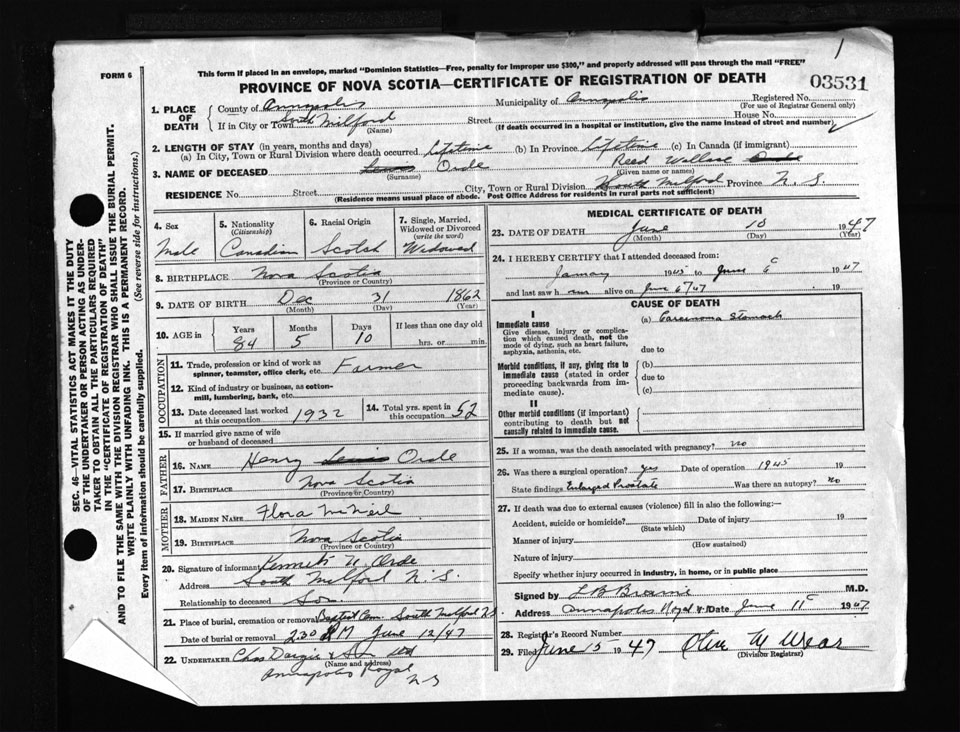 1
FORM 6
This form if placed in an envelope, marked "Dominion Statistics—Free, penalty for improper use $300," and properly addressed will pass through the mail "FREE"
PROVINCE OF NOVA SCOTIA—CERTIFICATE OF REGISTRATION OF DEATH
03531
1. PLACE OF DEATH
County of Annapolis Municipality of Annapolis Registered No.
(For use of Registrar General only)
If in City or Town South Milford Street House No.
(Name) (If death occurred in a hospital or institution, give the name instead of street and number)
2. LENGTH OF STAY (in years, months and days)
(a) In City, Town or Rural Division where death occurred Lifetime (b) In Province Lifetime (c) In Canada (if immigrant)
3. NAME OF DECEASED Lewis Orde Reed Wallace Orde
(Surname) (Given name or names)
RESIDENCE No. Street City, Town or Rural Division South Milford Province N. S.
(Residence means usual place of abode. Post Office Address for residents in rural parts not sufficient)
4. Sex
Male
5. Nationality (Citizenship)
Canadian
6. Racial Origin
Scotch
7. Single, Married, Widowed or Divorced (write the word)
Widowed
8. BIRTHPLACE Nova Scotia
(Province or Country)
9. DATE OF BIRTH Dec 31 1862
(Month) (Day) (Year)
10. AGE in Years Months Days If less than one day old
84 5 10 hrs. or min.
OCCUPATION
11. Trade, profession or kind of work as spinner, teamster, office clerk, etc. Farmer
12. Kind of industry or business, as cotton-mill, lumbering, bank, etc.
13. Date deceased last worked at this occupation 1932
14. Total yrs. spent in this occupation 52
15. If married give name of wife or husband of deceased
FATHER
16. NAME Henry Lewis Orde
17. BIRTHPLACE Nova Scotia
(Province or Country)
MOTHER
18. MAIDEN NAME Flora McNeil
19. BIRTHPLACE Nova Scotia
(Province or Country)
20. Signature of informant Kenneth Orde
Address South Milford N. S.
Relationship to deceased Son
21. Place of burial, cremation or removal Baptist Cem. South Milford N.S.
Date of burial or removal 2.30 PM June 12/47
22. UNDERTAKER Chas Dargie & Ltd
(Name and address)
Annapolis Royal
N S
MEDICAL CERTIFICATE OF DEATH
23. DATE OF DEATH June 10 1947
(Month) (Day) (Year)
24. I HEREBY CERTIFY that I attended deceased from:
January 1945 to June 6 1947
and last saw him alive on June 6/47 19
CAUSE OF DEATH
I
Immediate cause
Give disease, injury or complication which caused death, not the mode of dying, such as heart failure, asphyxia, asthenia, etc.
(a) Carcinoma Stomach
due to
Morbid conditions, if any, giving rise to immediate cause (stated in order proceeding backwards from immediate cause).
(b)
due to
(c)
II
Other morbid conditions (if important) contributing to death but not causally related to immediate cause.
25. If a woman, was the death associated with pregnancy? no
26. Was there a surgical operation? yes Date of operation 1945 19
State findings Enlarged Prostate Was there an autopsy? no
27. If death was due to external causes (violence) fill in also the following:—
Accident, suicide or homicide? Date of injury 19
(State which)
Manner of injury
(How sustained)
Nature of injury
Specify whether injury occurred in industry, in home, or in public place
Signed by L B Braine M.D.
Address Annapolis Royal Date June 11 1947
28. Registrar's Record Number
29. Filed June 15 1947
(Division Registrar)
SEC. 46—VITAL STATISTICS ACT MAKES IT THE DUTY
OF THE UNDERTAKER OR PERSON ACTING AS UNDER-
TAKER TO OBTAIN ALL THE PARTICULARS REQUIRED
IN THE "CERTIFICATE OF REGISTRATION OF DEATH"
AND TO FILE THE SAME WITH THE DIVISION REGISTRAR WHO SHALL ISSUE THE BURIAL PERMIT.
WRITE PLAINLY WITH UNFADING INK. THIS IS A PERMANENT RECORD.
Every item of information should be carefully supplied. (See reverse side for instructions.)